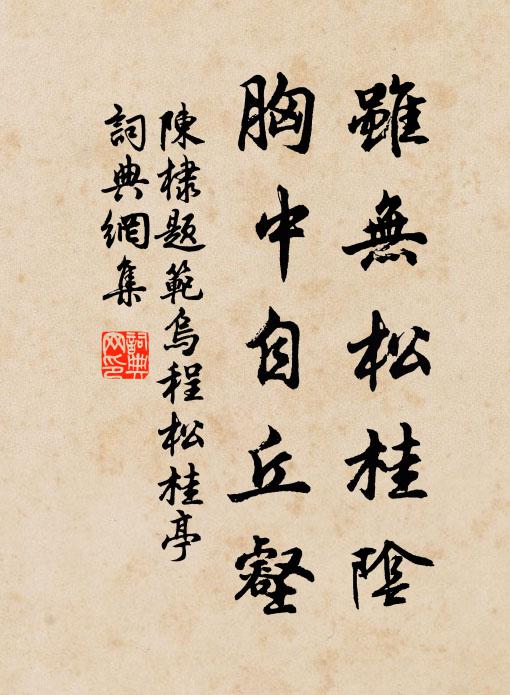 雖無松桂陰
胸中自丘壑
陳棣題範烏程松桂亭
詞典網集
詞典
网印